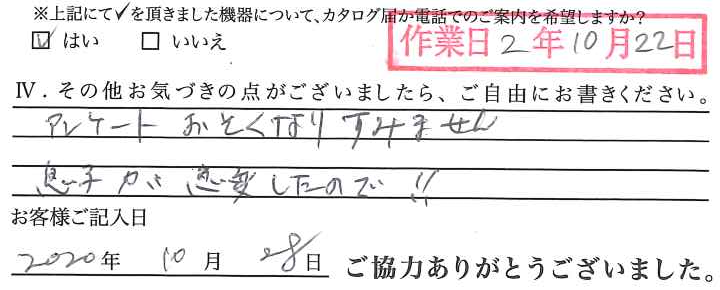 ※上記にて✓を頂きました機器について、カタログ届か電話でのご案内を希望しますか？
☑ はい □ いいえ
作業日2年10月22日
Ⅳ．その他お気づきの点がございましたら、ご自由にお書きください。
アンケートおそくなりすみません
息子が急変したので!!
お客様ご記入日
2020年 10月 28日 ご協力ありがとうございました。